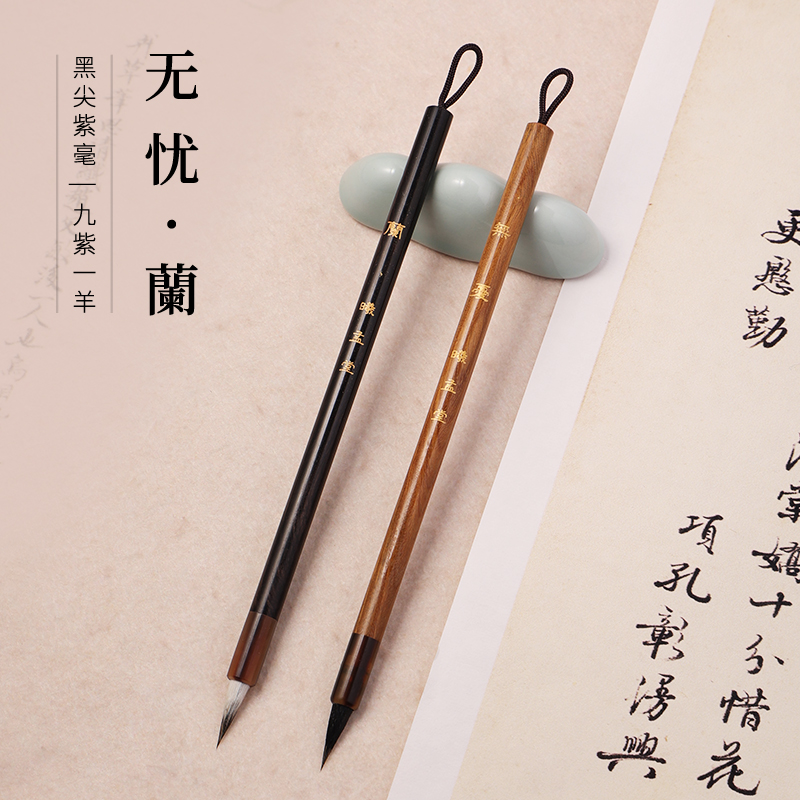 无忧·蘭
黑尖紫毫|九紫一羊
蘭 曦孟堂
無憂 曦孟堂
更慇勤
棠嬌十分惜花
項孔彰漫興